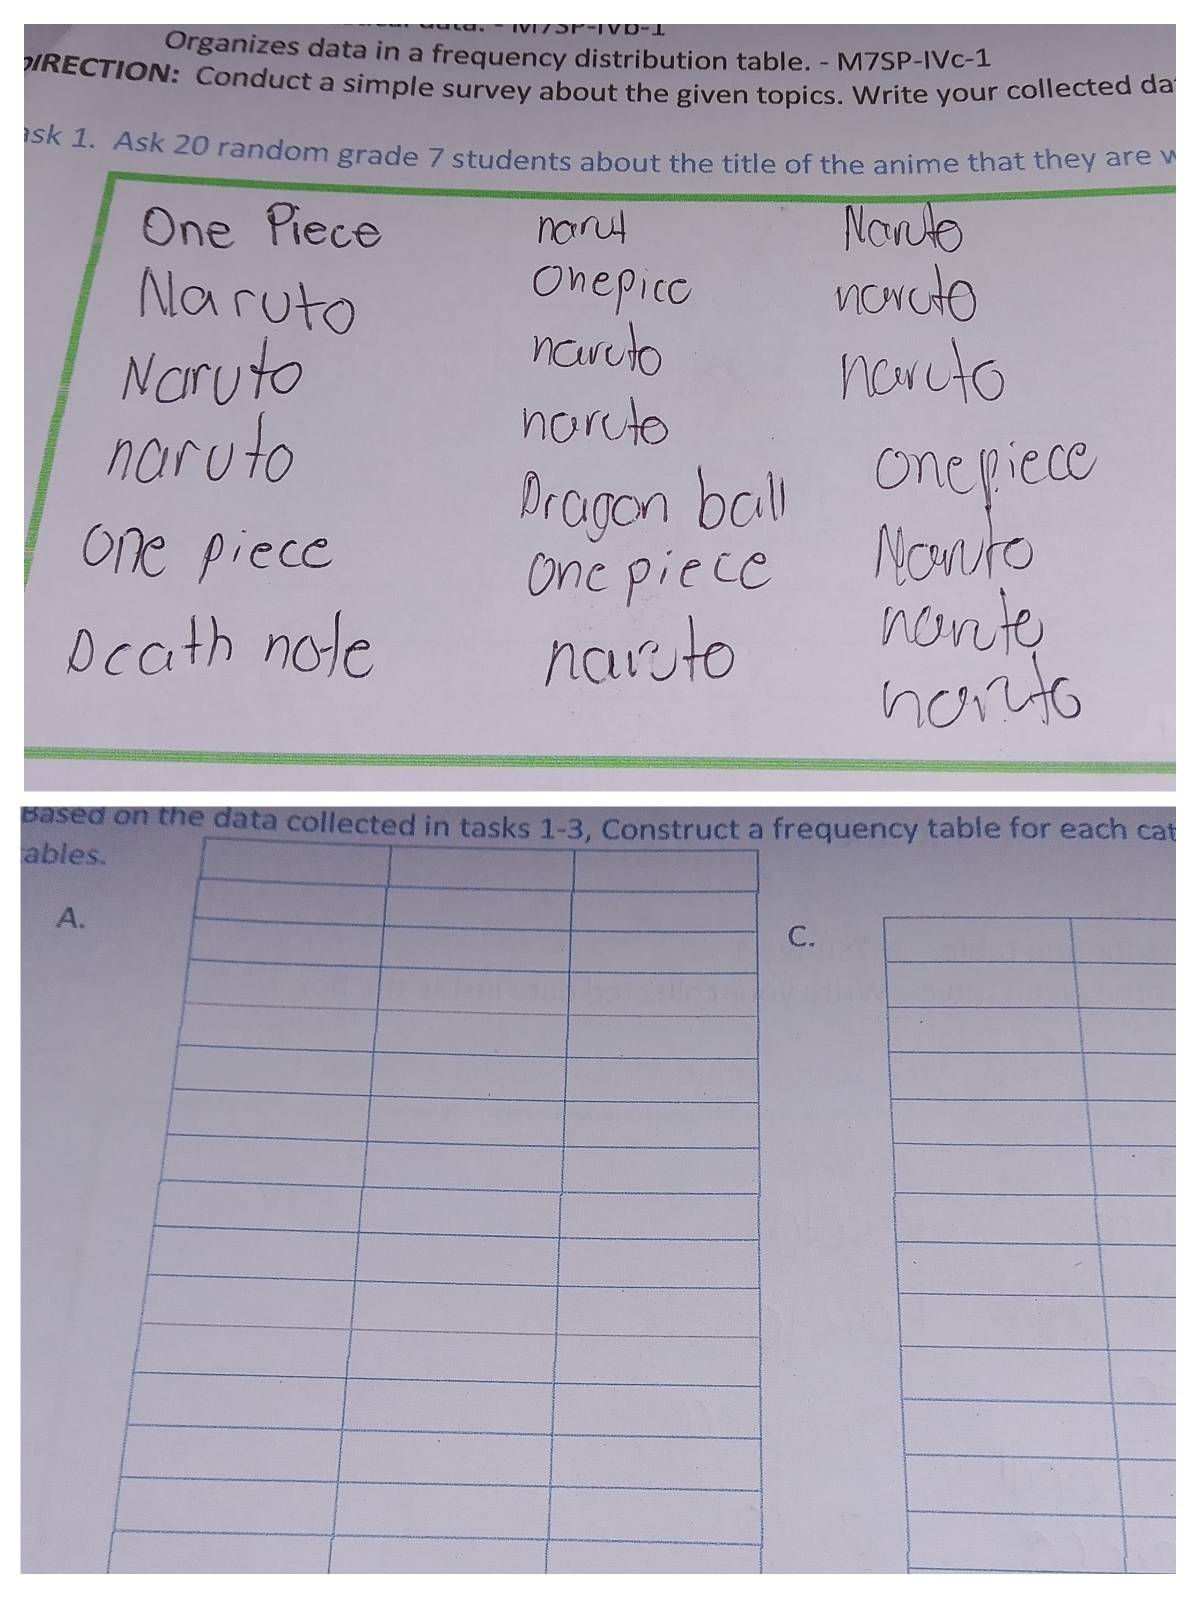 Organizes data in a frequency distribution table. - M7SP-IVc-1
DIRECTION: Conduct a simple survey about the given topics. Write your collected da
ask 1. Ask 20 random grade 7 students about the title of the anime that they are w
One Piece
Naruto
Naruto
naruto
one piece
Death note
narut
Onepice
naruto
naruto
Dragon ball
one piece
naruto
Naruto
naruto
naruto
onepiece
Naruto
narute
naruto
Based on the data collected in tasks 1-3, Construct a frequency table for each cat
ables.
A.
C.